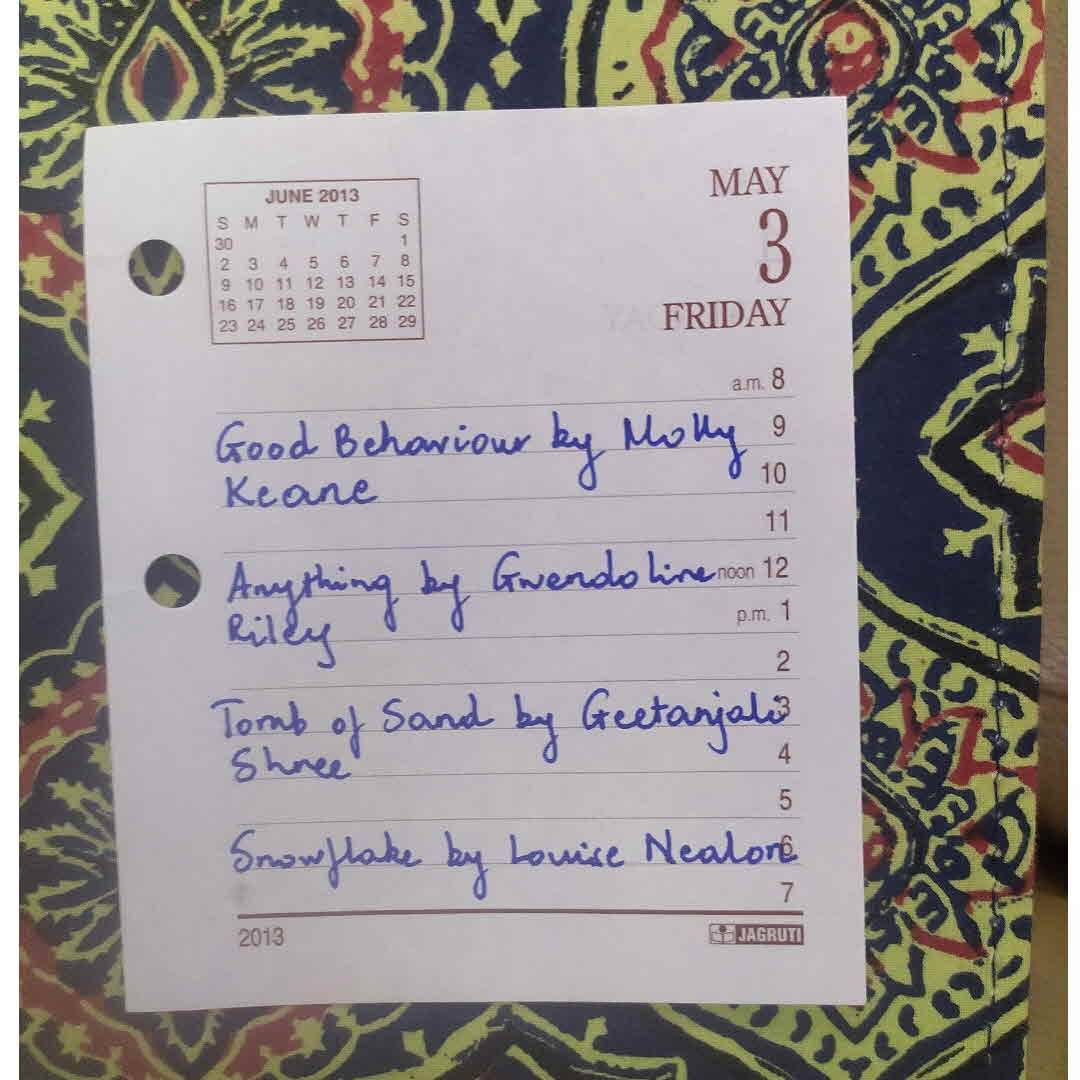 JUNE 2013
S M T W T F S
30 1
2 3 4 5 6 7 8
9 10 11 12 13 14 15
16 17 18 19 20 21 22
23 24 25 26 27 28 29
MAY
3
FRIDAY
a.m. 8
Good Behaviour by Molly 9
Keane 10
11
Anything by Gwendoline noon 12
Riley p.m. 1
2
Tomb of Sand by Geetanjali 3
Shree 4
5
Snowflake by Louise Nealon 6
7
2013 JAGRUTI